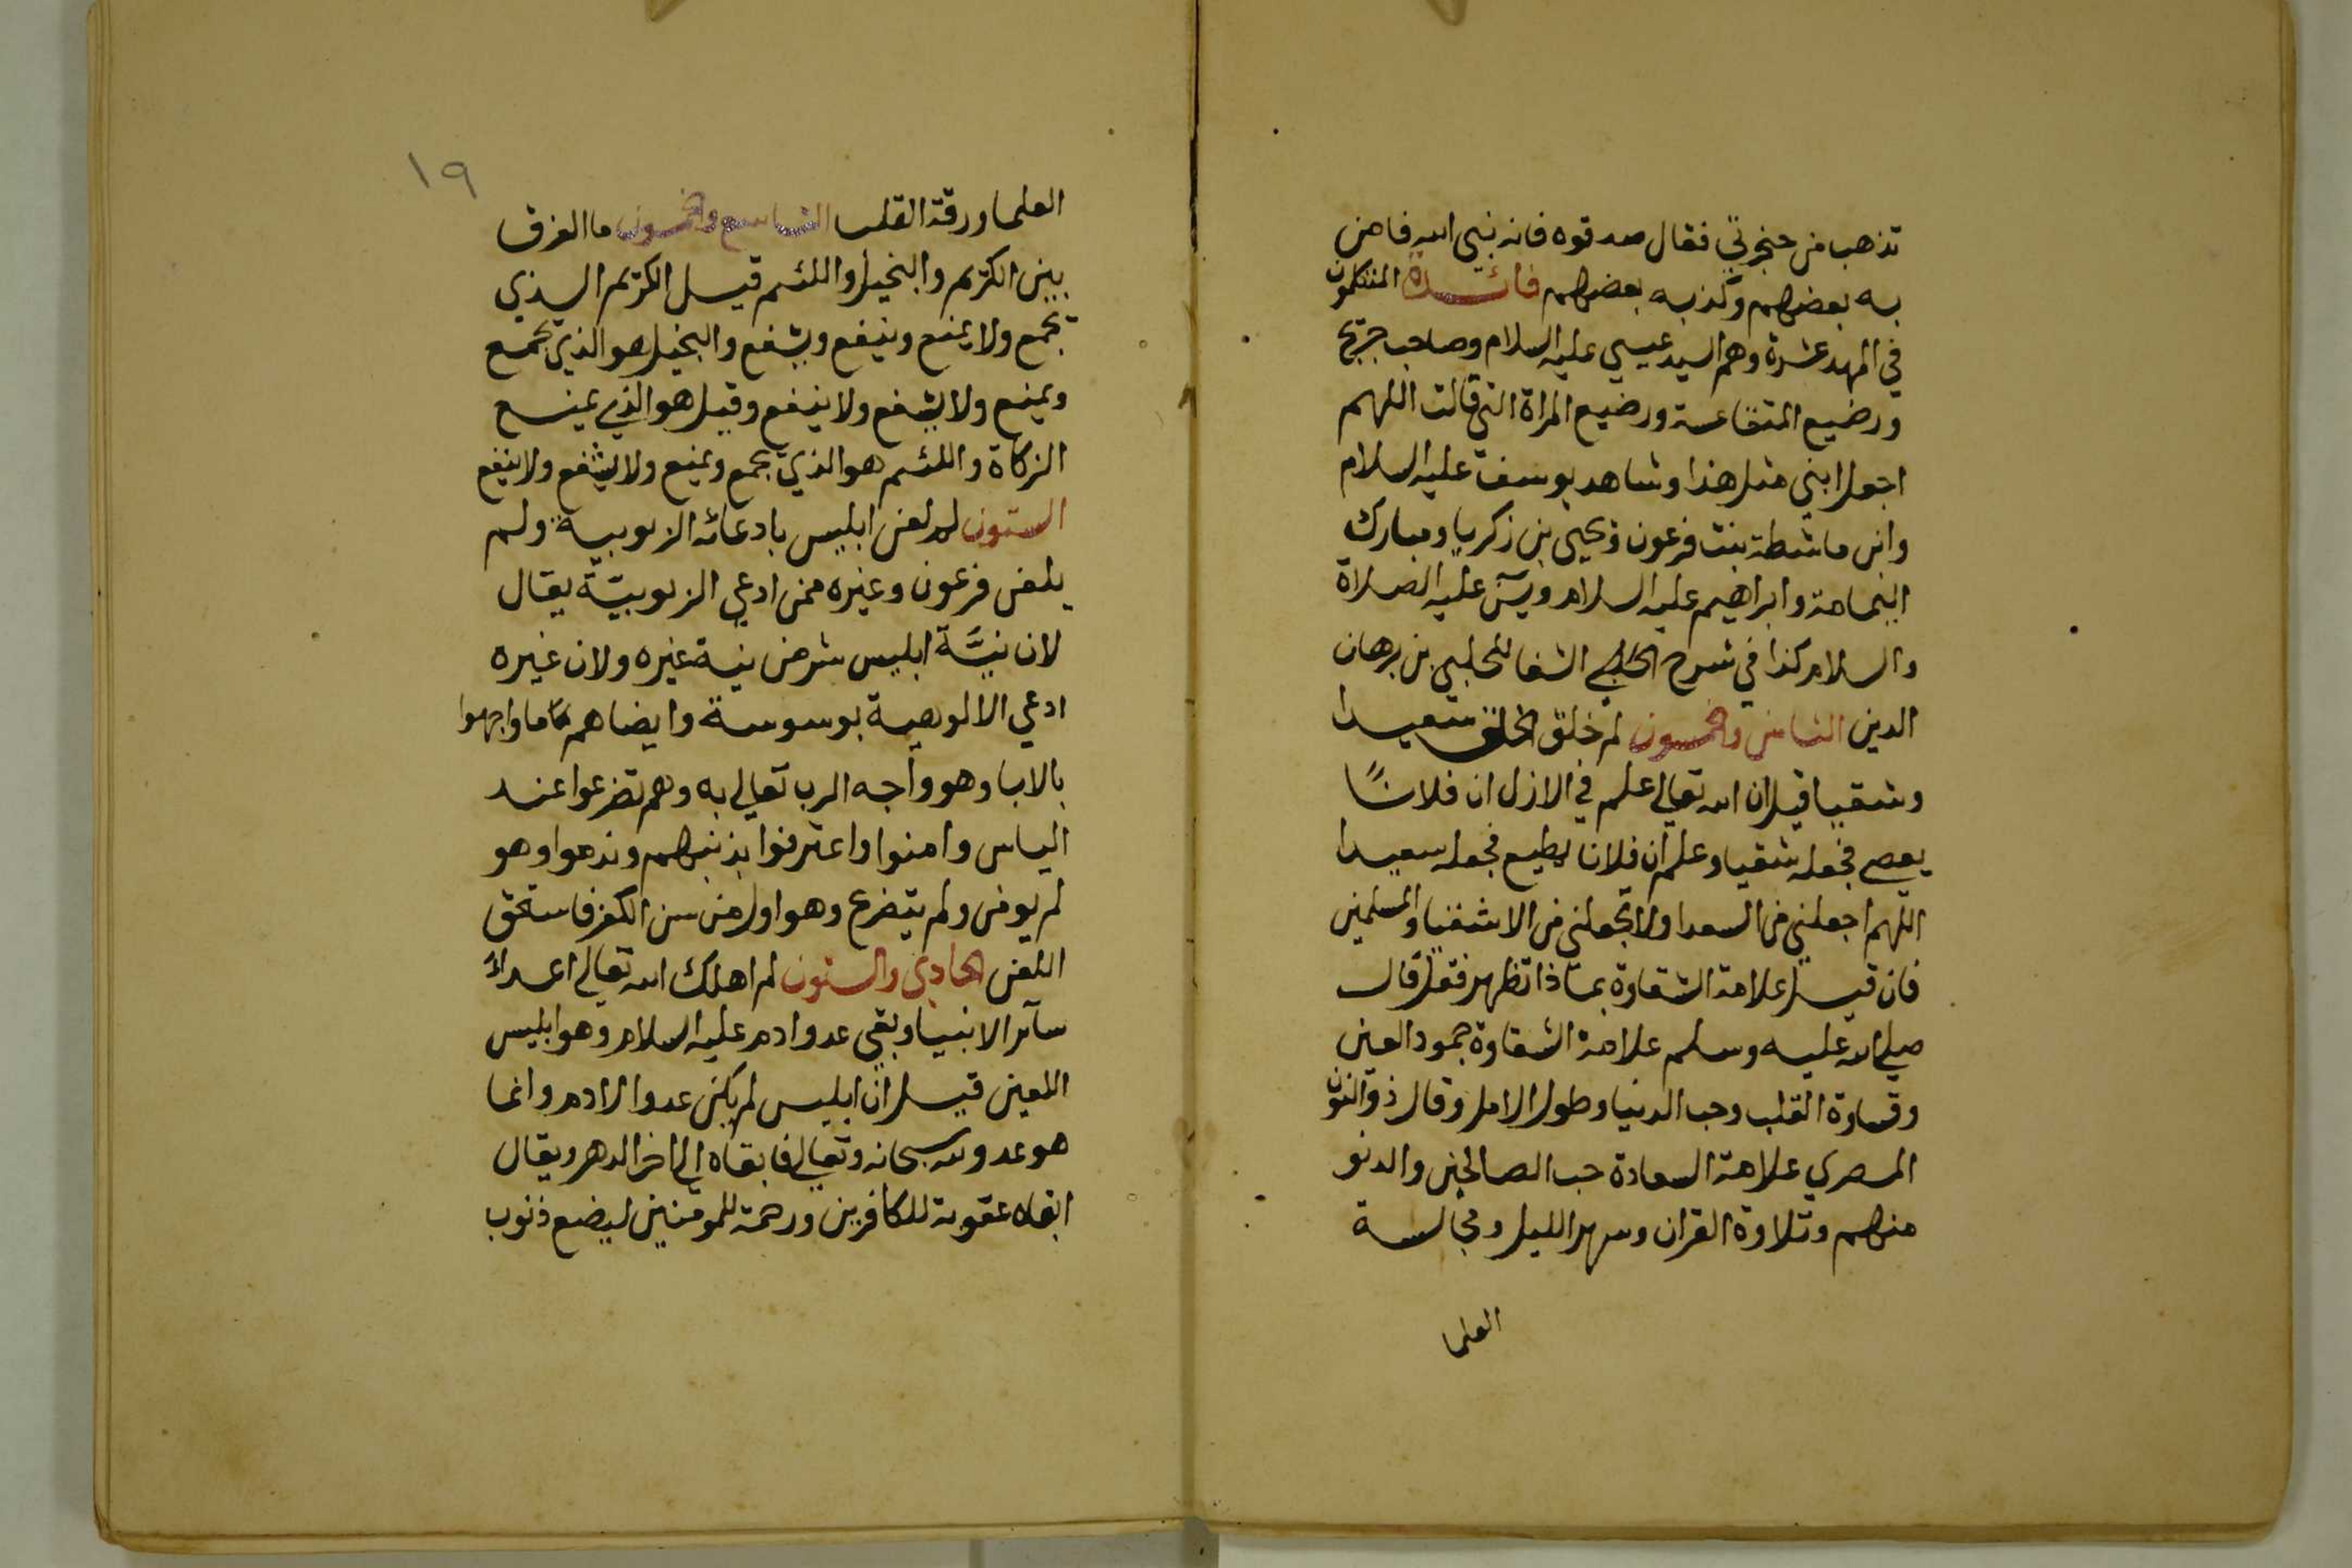 تذهب من حنجرتي فقال صدقوه فانه نبي الله فامن
به بعضهم وكذب به بعضهم فائدة المتكلمون
في المهد عشرة وهم السيد عيسي عليه السلام وصاحب جريج
ورضيع المتقاعسة ورضيع المراة التي قالت اللهم
اجعل ابني مثل هذا وشاهد يوسف عليه السلام
وابن ماشطة بنت فرعون ويحيى بن زكريا ومبارك
اليمامة وابراهيم عليه السلام ويس عليه الصلاة
والسلام كذا في شرح الحلبي الشفا للحلبي بن برهان
الدين الثامن والخمسون لم خلق الخلق سعيدا
وشقيا قيل ان الله تعالي علم في الازل ان فلانا
يعصي فجعله شقيا وعلم ان فلانا يطيع فجعله سعيدا
اللهم اجعلني من السعدا ولا تجعلني من الاشقيا والمسلمين
فان قيل علامة الشقاوة بماذا تظهر فقل قال
صلي الله عليه وسلم علامة الشقاوة جمود العين
وقساوة القلب وحب الدنيا وطول الامل وقال ذو النون
المصري علامة السعادة حب الصالحين والدنو
منهم وتلاوة القران وسهر الليل ومجالسة
العلما
١٩
العلما ورقة القلب التاسع والخمسون ما الفرق
بين الكريم والبخيل واللئيم قيل الكريم الذي
يجمع ولا يمنع وينفع ويشفع والبخيل هو الذي يجمع
ويمنع ولا يشفع ولا ينفع وقيل هو الذي يمنع
الزكاة واللئيم هو الذي يجمع ويمنع ولا يشفع ولا ينفع
الستون لم لعن ابليس بادعائه الربوبية ولم
يلعن فرعون وغيره ممن ادعي الربوبية يقال
لان نية ابليس شر من نية غيره ولان غيره
ادعي الالوهية بوسوسة وايضا هم ما واجهوا
بالابا وهو واجه الرب تعالي به وهم تضرعوا عند
الياس وامنوا واعترفوا بذنبهم وندموا وهو
لم يومن ولم يتضرع وهو اول من سن الكفر فاستحق
اللعن الحادي والستون لم اهلك الله تعالي اعداء
سائر الانبيا وبقي عدو ادم عليه السلام وهو ابليس
اللعين قيل ان ابليس لم يكن عدوا لادم وانما
هو عدو لله سبحانه وتعالي فابقاه الي اخر الدهر ويقال
ابقاه عقوبة للكافرين ورحمة للمومنين ليضع ذنوب